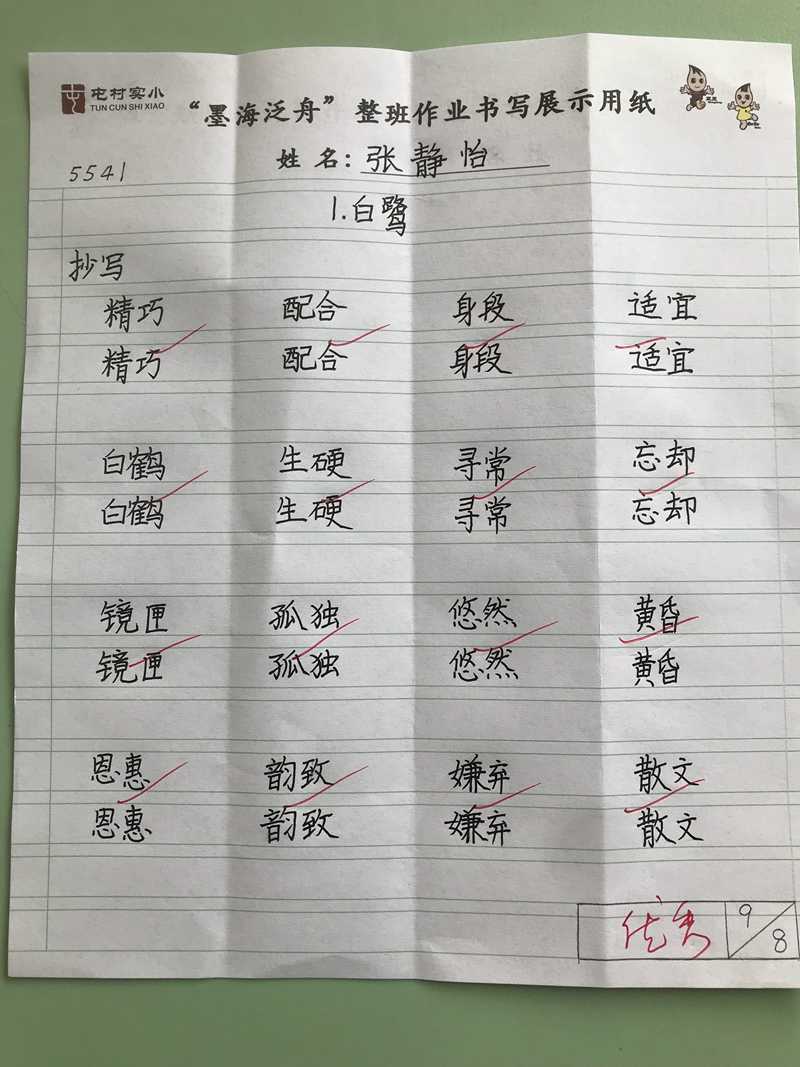 屯村实小
TUN CUN SHI XIAO
“墨海泛舟”整班作业书写展示用纸
姓名：张静怡
5541
1.白鹭
抄写
精巧 配合 身段 适宜
精巧 配合 身段 适宜
白鹤 生硬 寻常 忘却
白鹤 生硬 寻常 忘却
镜匣 孤独 悠然 黄昏
镜匣 孤独 悠然 黄昏
恩惠 韵致 嫌弃 散文
恩惠 韵致 嫌弃 散文
优秀 9/8